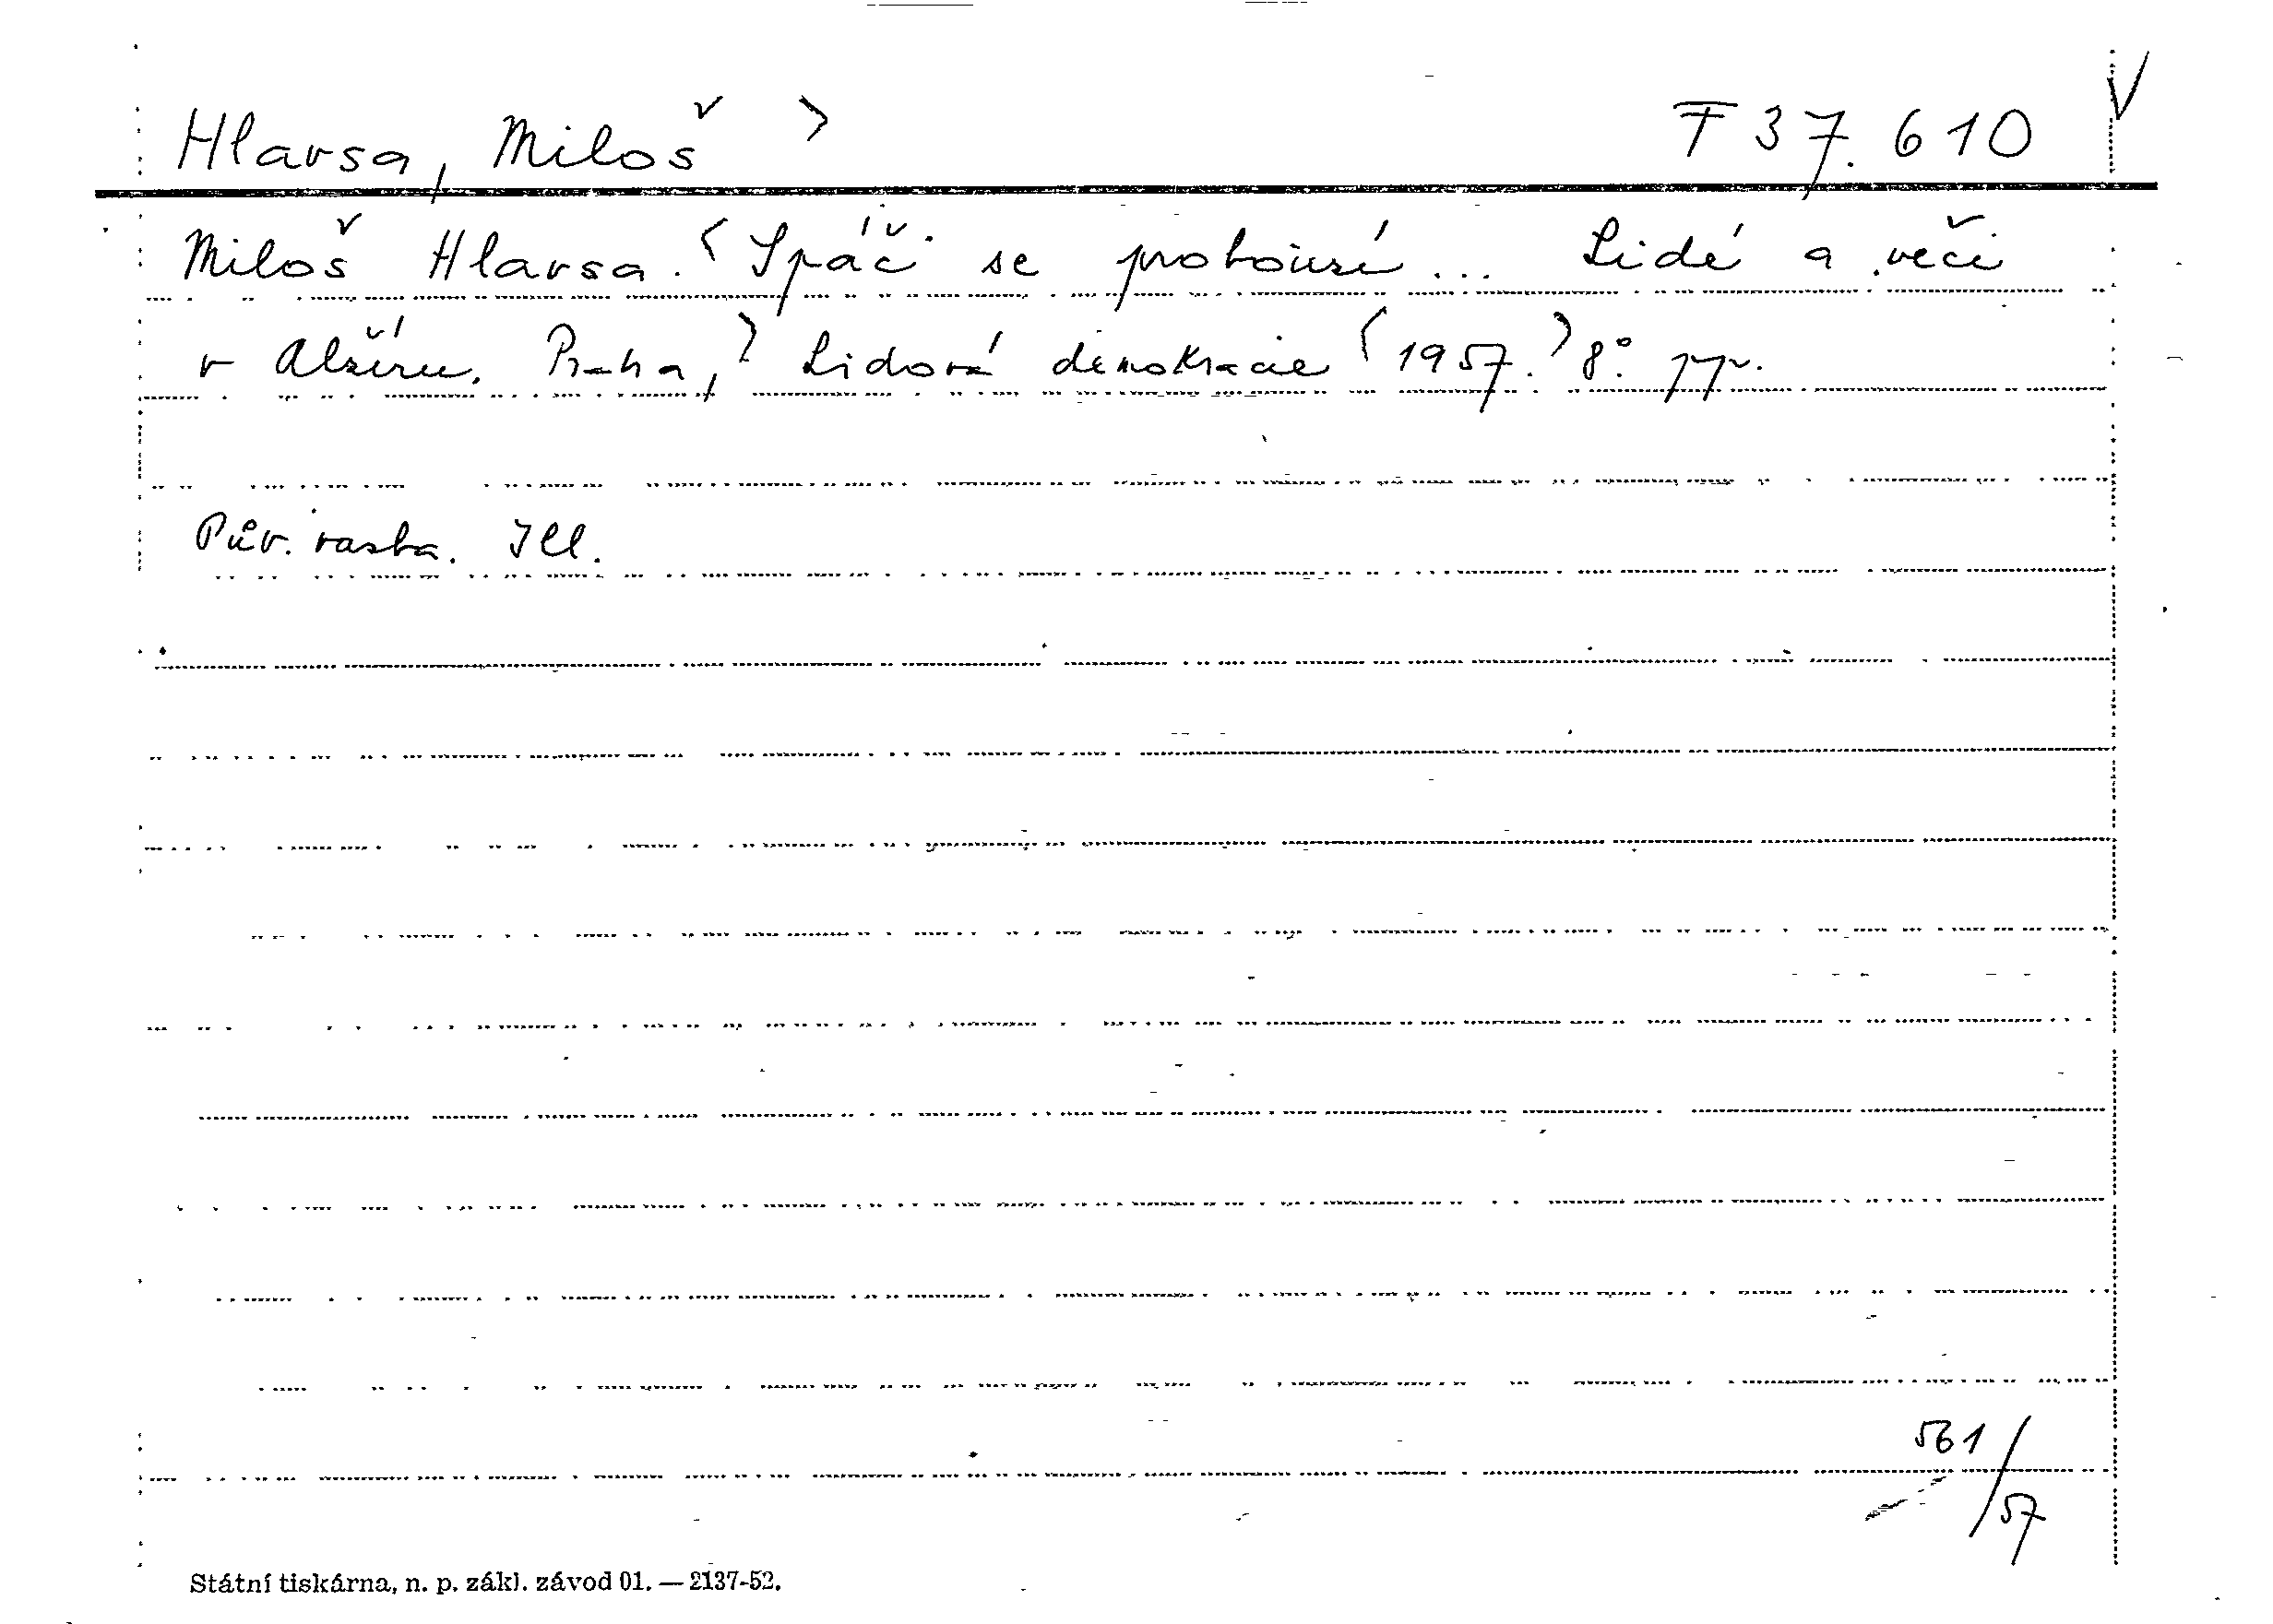 Hlavsa, Miloš ) F 37.610 V
Miloš Hlavsa. (Spáč se probouzí... Lidé a věci
v Alžíru. Praha,) Lidová demokracie (1957.) 8°.
Pův. vazba. Ill.
561/57
Státní tiskárna, n. p. zákl. závod 01. — 2137-52.